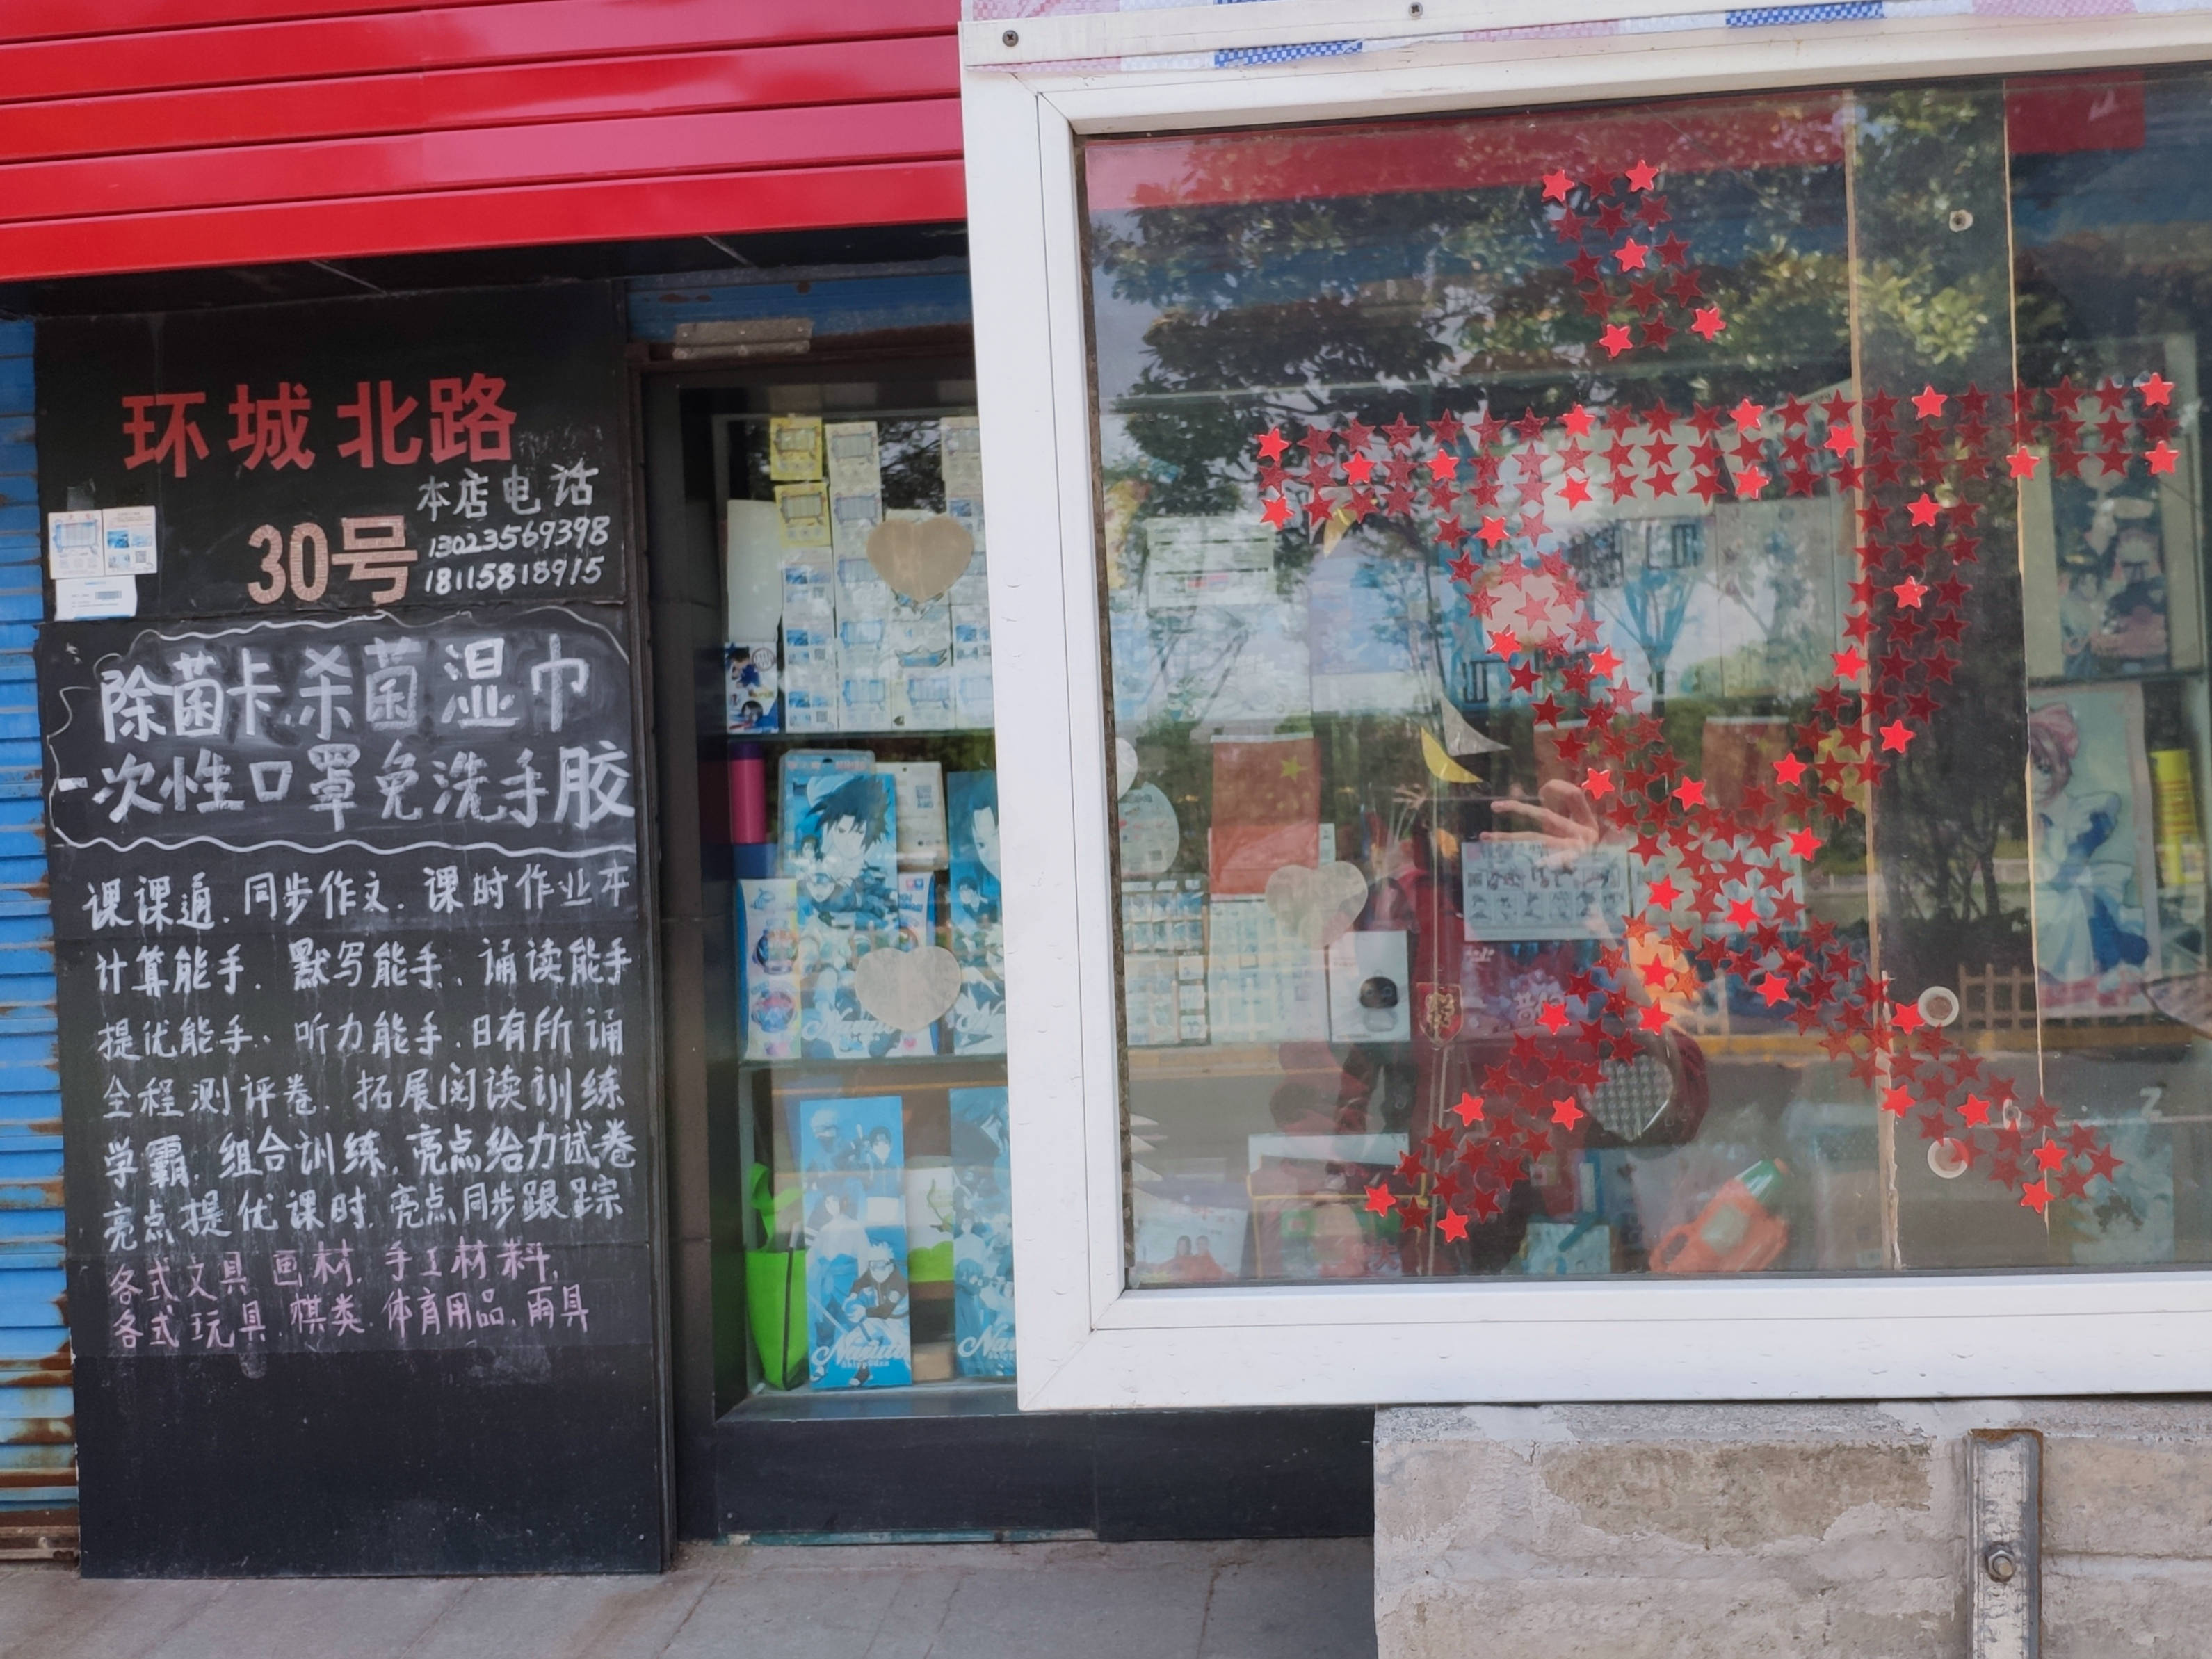 环城北路
本店电话
30号
13023569398
18115818915
除菌卡.杀菌湿巾
一次性口罩免洗手胶
课课通.同步作文.课时作业本
计算能手.默写能手、诵读能手
提优能手、听力能手.日有所诵
全程测评卷.拓展阅读训练
学霸.组合训练.亮点给力试卷
亮点提优课时.亮点同步跟踪
各式文具画材.手工材料,
各式玩具.棋类.体育用品.雨具
Naruto
文